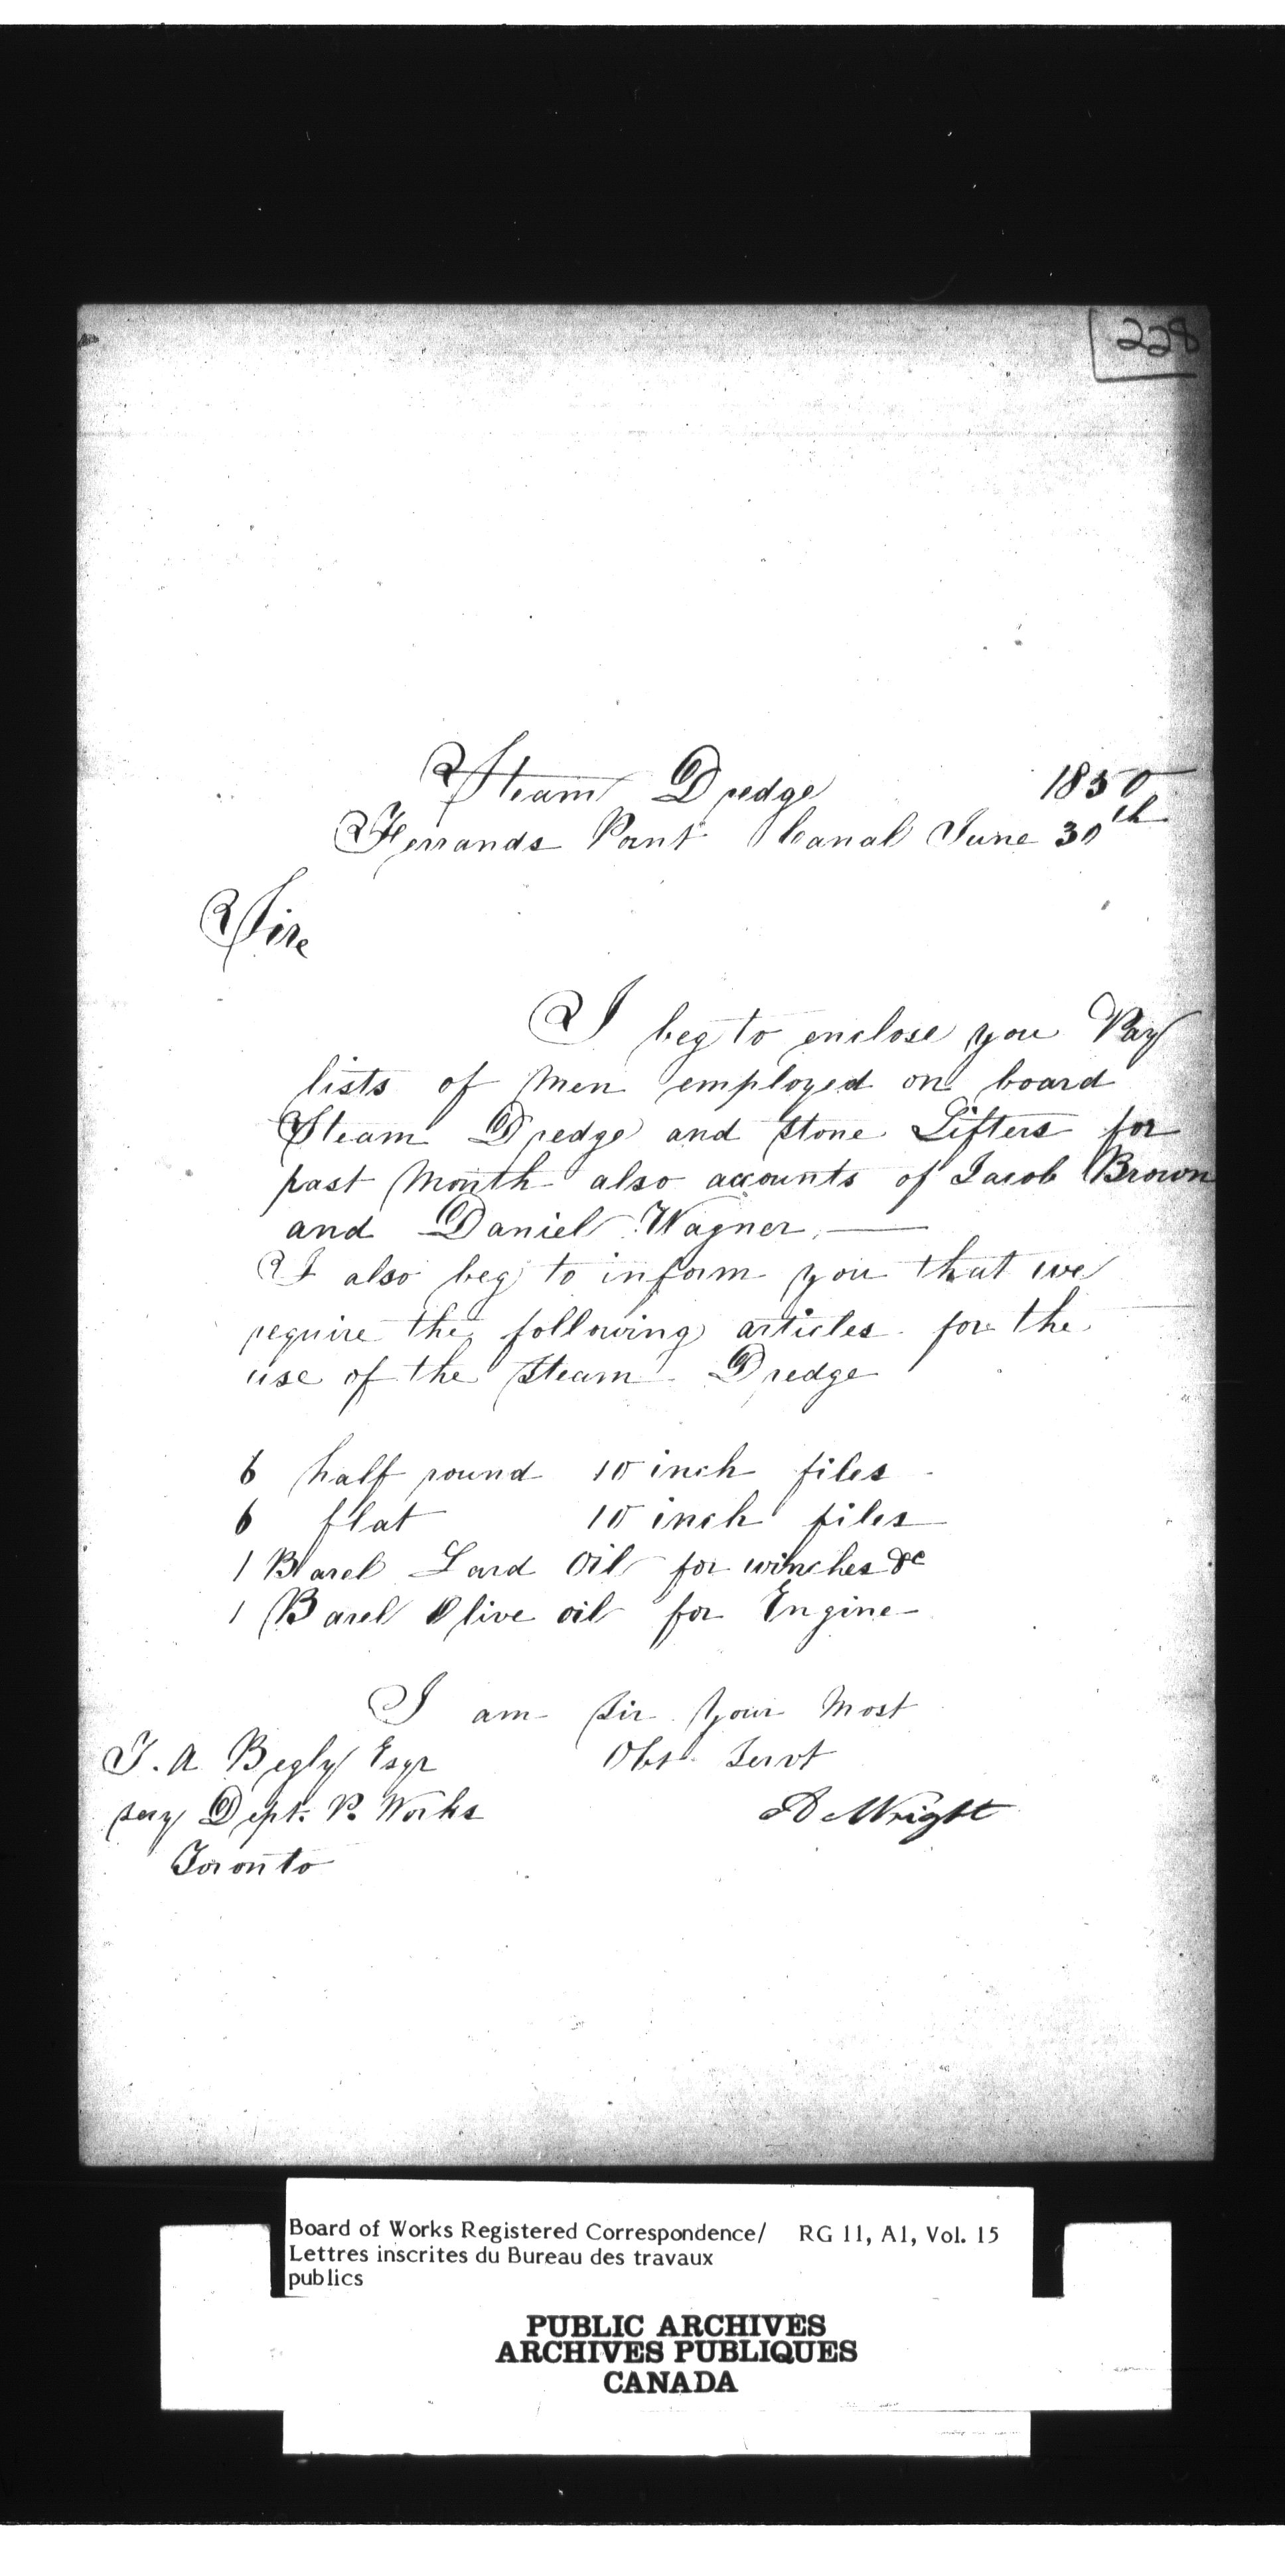 228
Steam Dredge 1850
Ferrands Point Canal June 30th
Sire
I beg to enclose you Pay
lists of Men employed on board
Steam Dredge and stone Lifters for
past Month also accounts of Jacob Brown
and Daniel Wagner. —
I also beg to inform you that we
require the following articles for the
use of the Steam Dredge
6 half round 10 inch files
6 flat 10 inch files
1 Barel Lard Oil for winches &c
1 Barel Olive oil for Engine
I am Sir Your Most
T. A Begly Esqr Obt Servt
Secy Dept. P. Works A Wright
Toronto
Board of Works Registered Correspondence/ RG 11, A1, Vol. 15
Lettres inscrites du Bureau des travaux
publics
PUBLIC ARCHIVES
ARCHIVES PUBLIQUES
CANADA